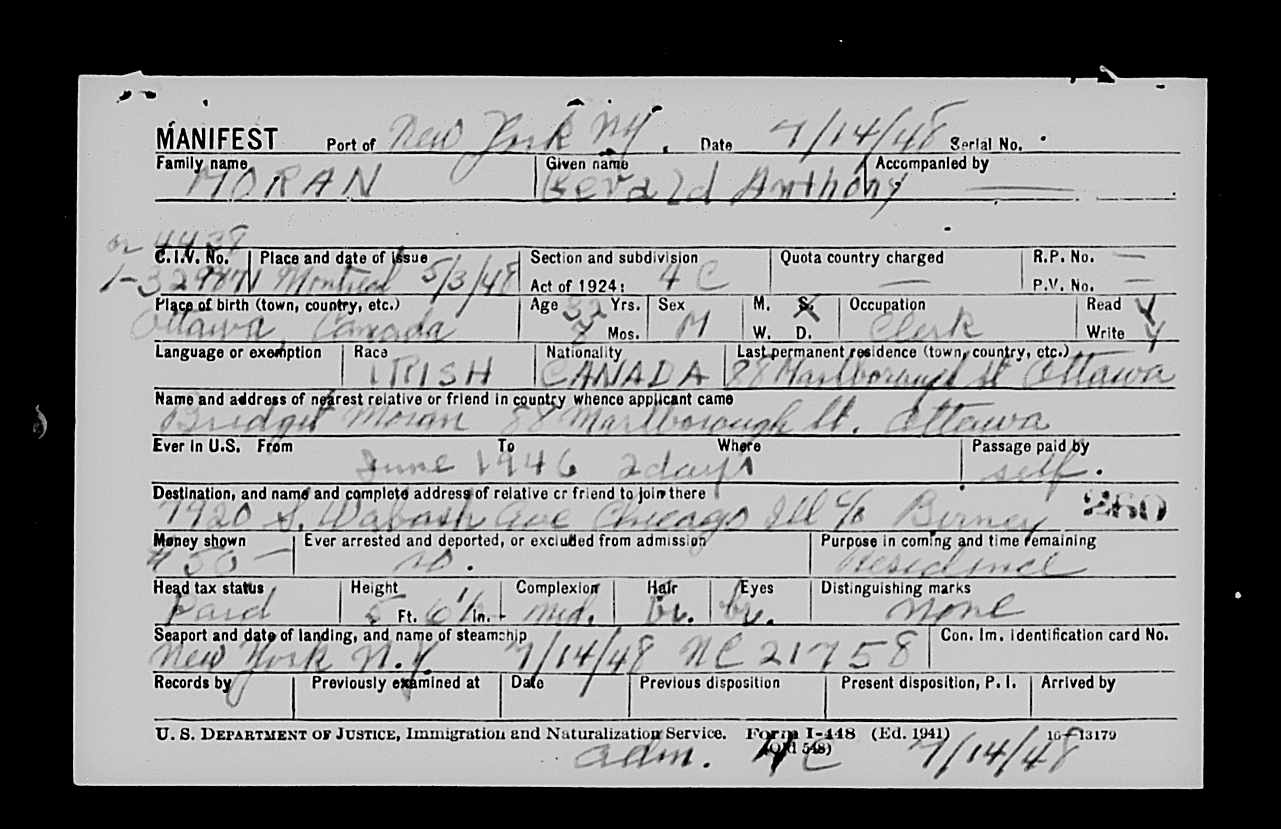 MANIFEST Port of New York NY. Date 7/14/48 Serial No.
Family name MORAN Given name Gerald Anthony Accompanied by —
or 4438
C.I.V. No. Place and date of issue Section and subdivision Quota country charged R.P. No. —
1-32987 Montreal 5/3/48 Act of 1924: 4 C — P.V. No. —
Place of birth (town, country, etc.) Age 32 Yrs. Sex M. S. Occupation Read Y
Ottawa Canada 7 Mos. M W. D. Clerk Write Y
Language or exemption Race Nationality Last permanent residence (town, country, etc.)
IRISH CANADA 88 Marlborough St Ottawa
Name and address of nearest relative or friend in country whence applicant came
Bridget Moran 88 Marlborough St. Ottawa
Ever in U.S. From To Where Passage paid by
June 1946 2 days self.
Destination, and name and complete address of relative or friend to join there
7920 S. Wabash Ave Chicago Ill c/o Birney 260
Money shown Ever arrested and deported, or excluded from admission Purpose in coming and time remaining
$50— no. Residence
Head tax status Height Complexion Hair Eyes Distinguishing marks
Paid 5 Ft. 6 1/2 In. med. br. br. none
Seaport and date of landing, and name of steamship Con. Im. identification card No.
New York N.Y. 7/14/48 NC 21758
Records by Previously examined at Date Previous disposition Present disposition, P. I. Arrived by
U. S. DEPARTMENT OF JUSTICE, Immigration and Naturalization Service. Form I-448 (Ed. 1941) 16—13179
(Old 548)
adm. 4C 7/14/48